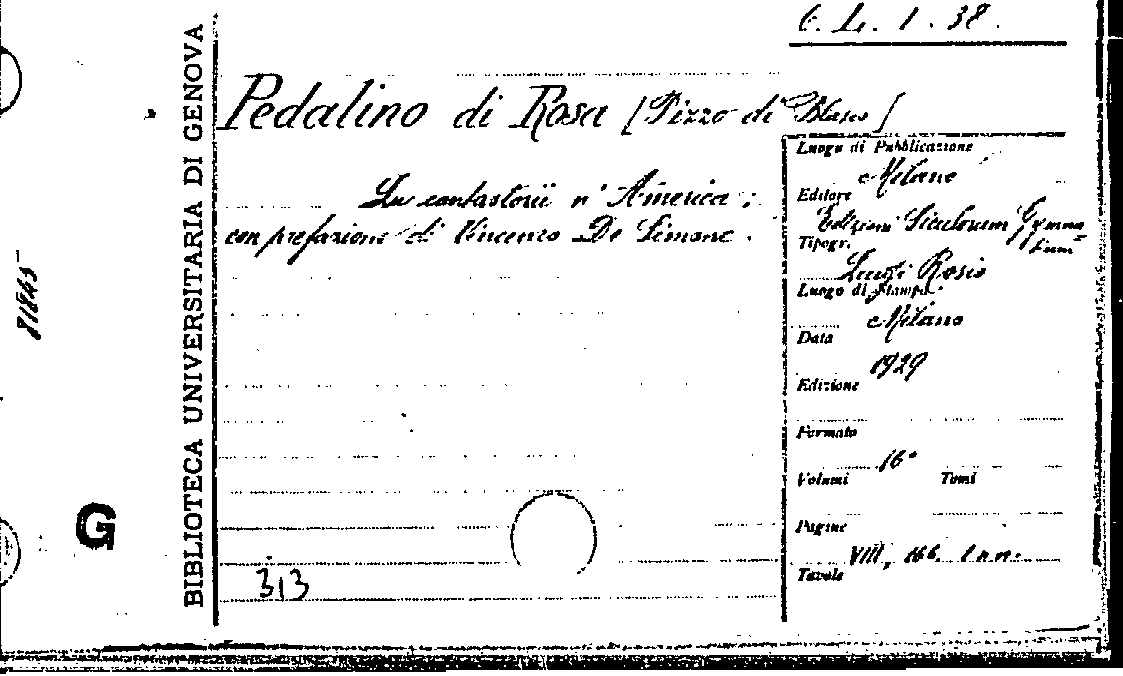 6. L. 1. 38.
BIBLIOTECA UNIVERSITARIA DI GENOVA
Pedalino di Rosa [Pizzo di Blasco]
Lu contastorii n' America;
con prefazione di Vincenzo De Simone.
Luogo di Pubblicazione
Milano
Editore
Edizioni Siculorum Gymna
sium
Tipogr.
Luigi Rosio
Luogo di Stampa
Milano
Data
1929
Edizione
Formato
16°
Volumi Tomi
Pagine
VIII, 166.
Tavole
81845
G
313